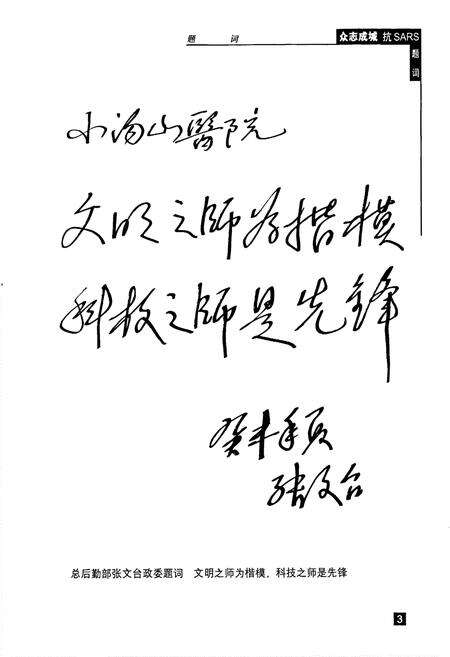 题 词
众志成城 抗SARS
题词
小汤山醫院
文明之师为楷模
科技之师是先锋
癸未年夏
张文台
总后勤部张文台政委题词 文明之师为楷模，科技之师是先锋
3